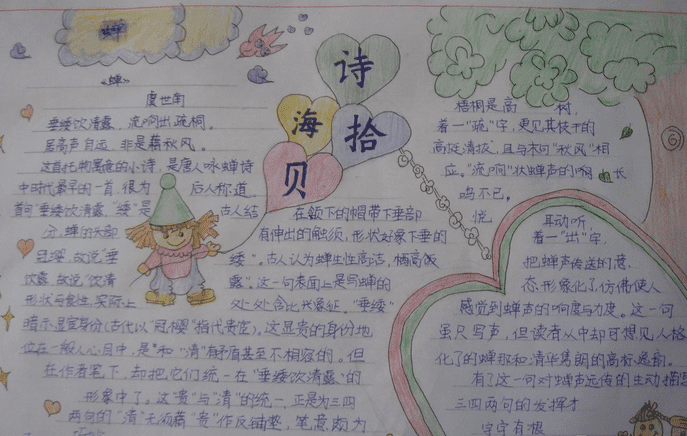 诗
海
拾
贝
《蝉》
虞世南
垂緌饮清露，流响出疏桐。
居高声自远，非是藉秋风。
这首托物寓意的小诗，是唐人咏蝉诗
中时代最早的一首，很为 后人称道。
首句“垂緌饮清露，“緌”是 古人结
在颔下的帽带下垂部
分，蝉的头部 有伸出的触须，形状好象下垂的
且深，故说“垂 緌”。古人认为蝉生性高洁，栖高饮
饮露，故说“饮清 露”。这一句表面上是写蝉的
形状与食性，实际上 处处含比兴象征。“垂緌”
暗示显宦身份（古代以“冠缨”指代贵宦）。这显贵的身份地
位在一般人心目中，是“和“清”有矛盾甚至不相容的。但
在作者笔下，却把它们统一在“垂緌饮清露”的
形象中了。这“贵”与“清”的统一，正是为三四
两句的“清”无须藉“贵”作反铺垫，笔意颇为
梧桐是高 树，
着一“疏”字，更见其枝干的
高挺清拔，且与末句“秋风”相
应。“流响”状蝉声的 长
鸣不已。
悦 耳动听，
着一“出”字，
把蝉声传送的意
态形象化了，仿佛使人
感觉到蝉声的响度与力度。这一句
虽只写声，但读者从中却可想见人格
化了的蝉那和清华隽朗的高标逸韵。
有了这一句对蝉声远传的生动描
三四两句的发挥才
字字有根